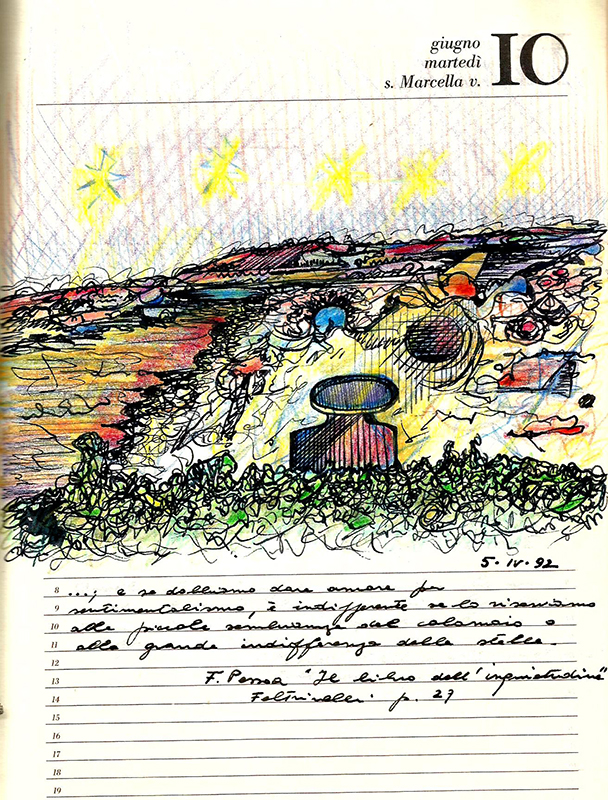 giugno
martedì
s. Marcella v.
10
5·IV·92
8 ...; e se dobbiamo dare amore per
9 sentimentalismo, è indifferente se lo riserviamo
10 alle piccole sembianze del calamaio o
11 alla grande indifferenza delle stelle.
12
13 F. Pessoa "Il libro dell'inquietudine"
14 Feltrinelli p. 27
15
16
17
18
19